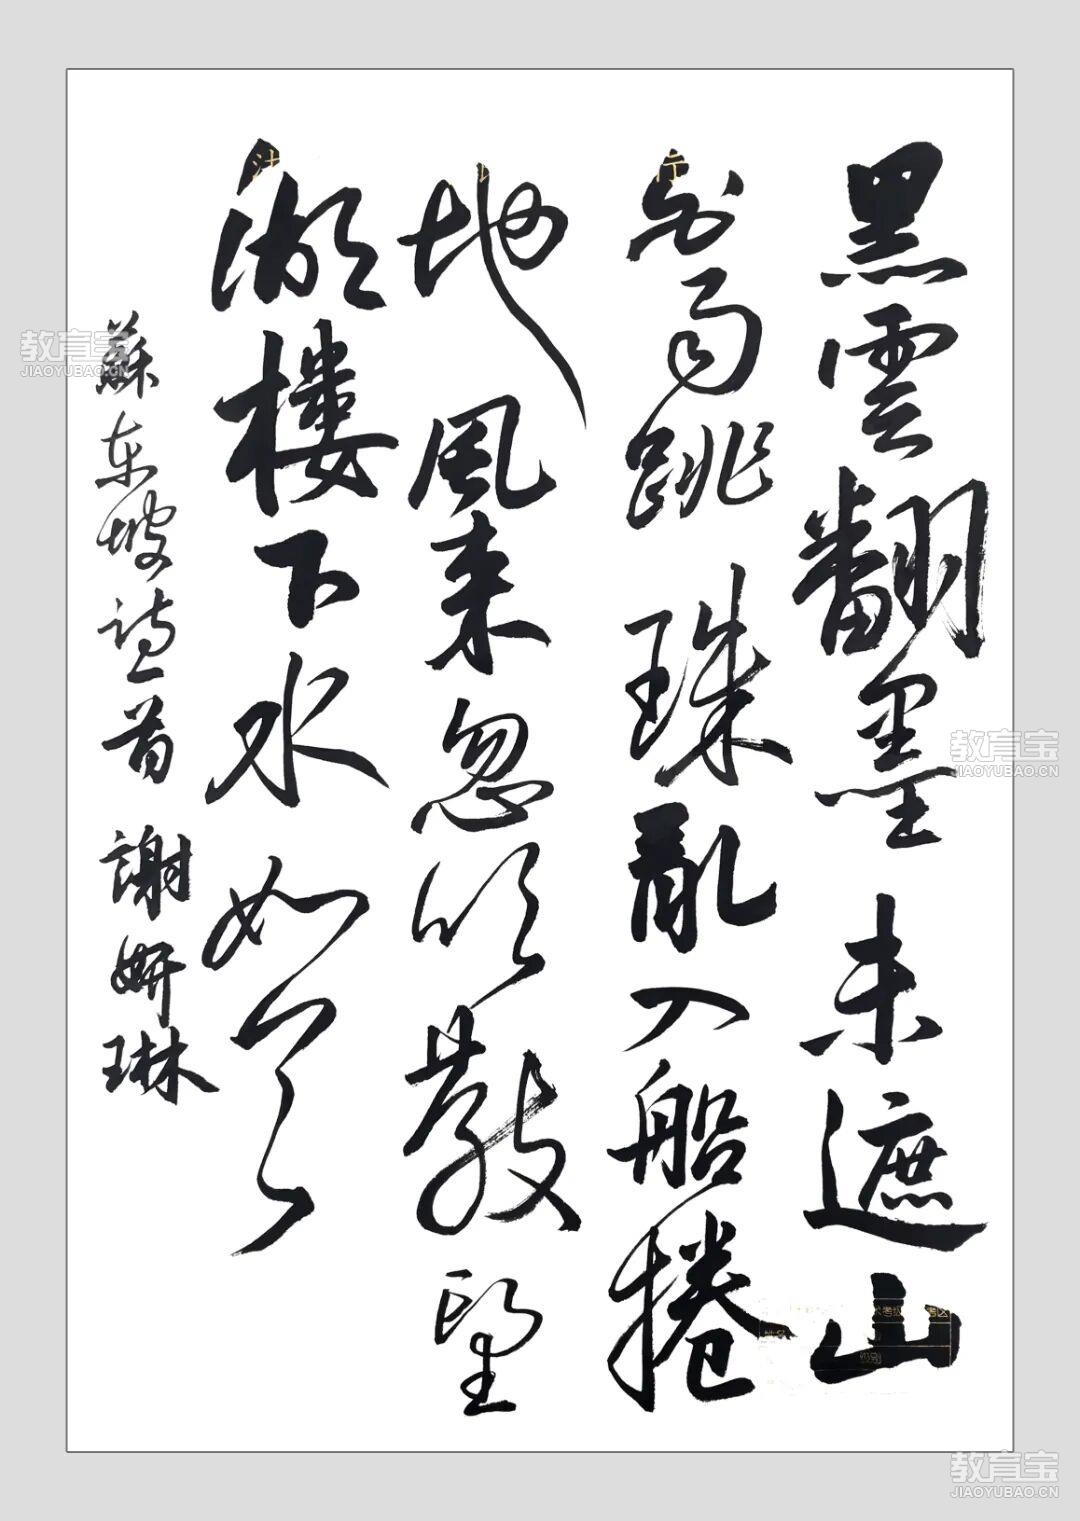 黑雲翻墨未遮山
白雨跳珠亂入船捲
地風来忽吹散望
湖樓下水如天
蘇东坡詩一首 謝妍琳
教育宝
JIAOYUBAO.CN
教育宝
JIAOYUBAO.CN
教育宝
JIAOYUBAO.CN